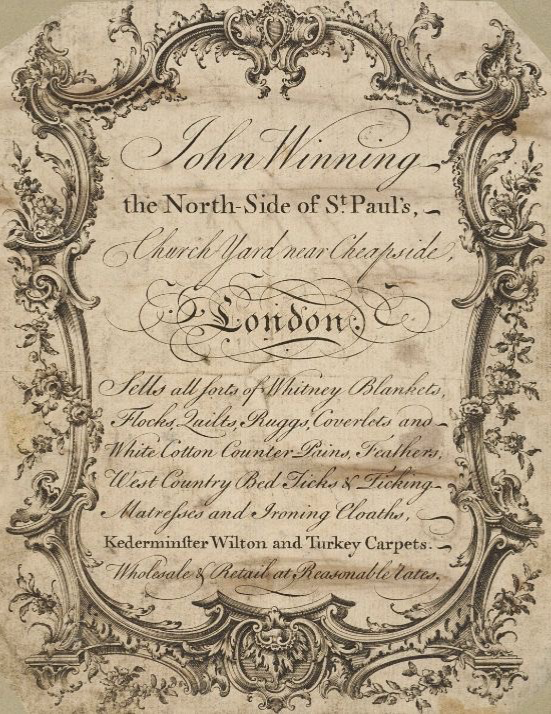 John Winning
the North-Side of St. Paul's,
Church Yard near Cheapside,
London.
Sells all sorts of Whitney Blankets,
Flocks, Quilts, Ruggs, Coverlets and
White Cotton Counter-Pains, Feathers,
West Country Bed Ticks & Ticking
Matreſses and Ironing Cloaths,
Kederminſter Wilton and Turkey Carpets.
Wholesale & Retail at Reasonable rates.